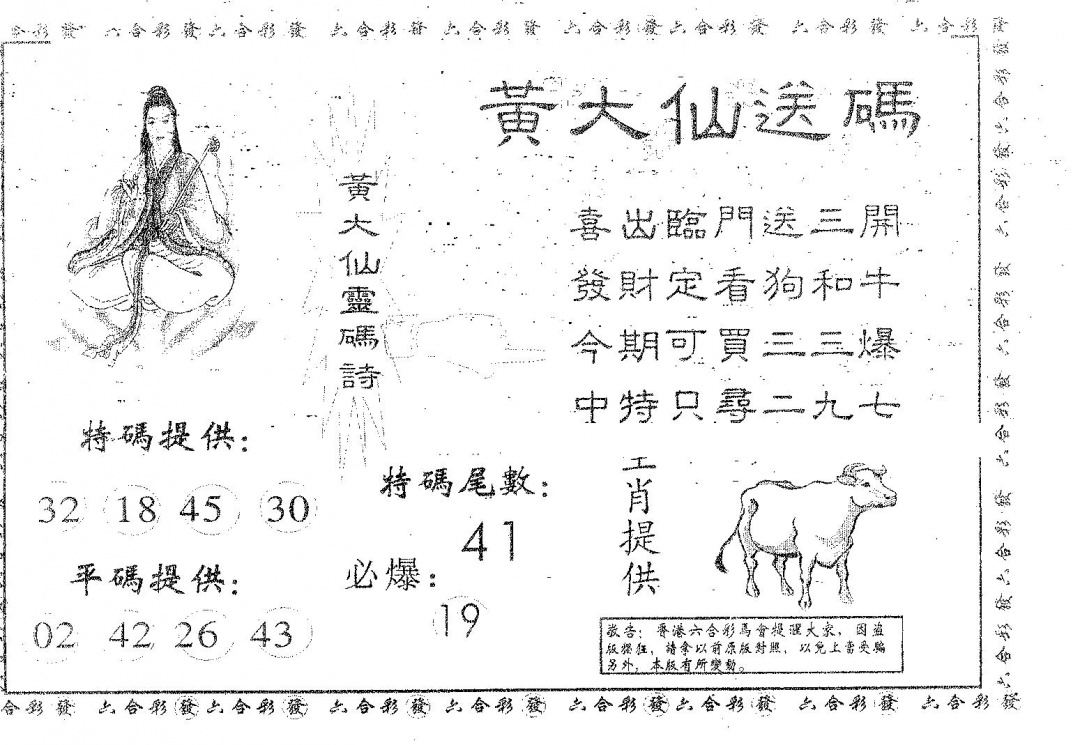 六合彩發 六合彩發 六合彩發 六合彩發 六合彩發 六合彩發 六合彩發 六合彩
黃大仙送碼
黃大仙靈碼詩
喜出臨門送三開
發財定看狗和牛
今期可買三三爆
中特只尋二九七
特碼提供:
32 18 45 30
平碼提供:
02 42 26 43
特碼尾數:
41
必爆:
19
肖提供
敬告：香港六合彩馬會提醒大家，因盜
版猖狂，請拿以前原版對照，以免上當受騙
另外，本版有所變動。
合彩發 六合彩發 六合彩發 六合彩發 六合彩發 六合彩發 六合彩發 六合彩發 六合彩發
六合彩發 六合彩發 六合彩發 六合彩發 六合彩發